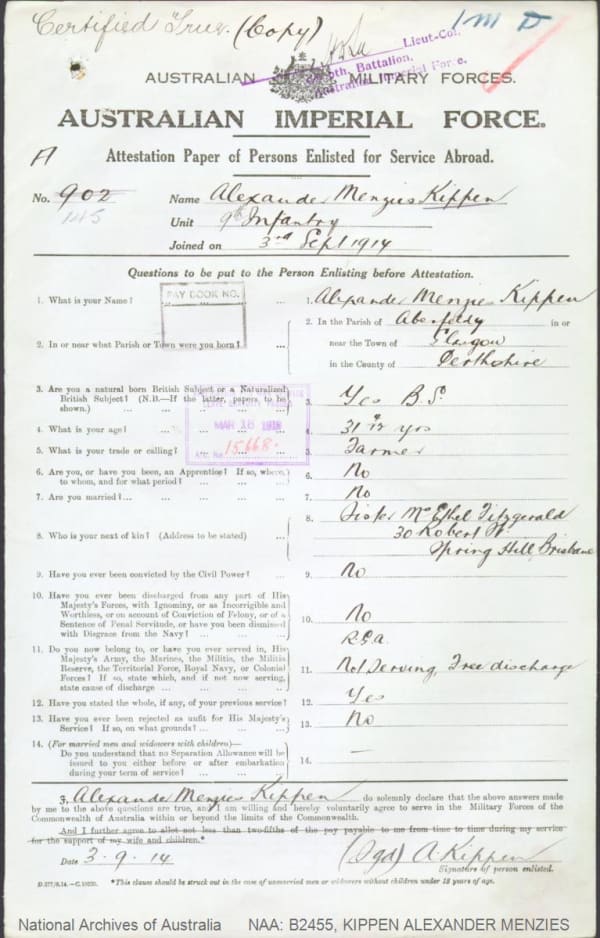 Certified True (Copy)
1 M D
Lieut-Col.
Battalion,
Australian Imperial Force.
AUSTRALIAN MILITARY FORCES.
AUSTRALIAN IMPERIAL FORCE.
A
Attestation Paper of Persons Enlisted for Service Abroad.
No. 902 Name Alexander Menzies Kippen
145
Unit 9th Infantry
Joined on 3rd Sept 1914
Questions to be put to the Person Enlisting before Attestation.
PAY BOOK NO.
1. What is your Name? 1. Alexander Menzies Kippen
2. In or near what Parish or Town were you born? ... 2. In the Parish of Aberfeldy in or
near the Town of Glasgow
in the County of Perthshire
3. Are you a natural born British Subject or a Naturalized
British Subject? (N.B.—If the latter, papers to be
shown.) ... ... 3. Yes B.S.
MAR 16 1918
15668.
4. What is your age? ... 4. 31 yrs
5. What is your trade or calling? ... 5. Farmer
6. Are you, or have you been, an Apprentice? If so, where,
to whom, and for what period? ... 6. No
7. Are you married? ... 7. No
8. Who is your next of kin? (Address to be stated) ... 8. Sister Mrs Ethel Fitzgerald
30 Robert St
Spring Hill, Brisbane
9. Have you ever been convicted by the Civil Power? ... 9. No
10. Have you ever been discharged from any part of His
Majesty's Forces, with Ignominy, or as Incorrigible and
Worthless, or on account of Conviction of Felony, or of a
Sentence of Penal Servitude, or have you been dismissed
with Disgrace from the Navy? ... 10. No
11. Do you now belong to, or have you ever served in, His
Majesty's Army, the Marines, the Militia, the Militia
Reserve, the Territorial Force, Royal Navy, or Colonial
Forces? If so, state which, and if not now serving,
state cause of discharge ... 11. R.G.A.
Not Serving, Free discharge
12. Have you stated the whole, if any, of your previous service? 12. Yes
13. Have you ever been rejected as unfit for His Majesty's
Service? If so, on what grounds? ... 13. No
14. (For married men and widowers with children)—
Do you understand that no Separation Allowance will be
issued to you either before or after embarkation
during your term of service? ... 14. —
I, Alexander Menzies Kippen do solemnly declare that the above answers made
by me to the above questions are true, and I am willing and hereby voluntarily agree to serve in the Military Forces of the
Commonwealth of Australia within or beyond the limits of the Commonwealth.
And I further agree to allot not less than two-fifths of the pay payable to me from time to time during my service
for the support of my wife and children.*
Date 3.9.14 (Sgd) A. Kippen
Signature of person enlisted.
D.277/8.14.—C.10930.
*This clause should be struck out in the case of unmarried men or widowers without children under 18 years of age.
National Archives of Australia NAA: B2455, KIPPEN ALEXANDER MENZIES